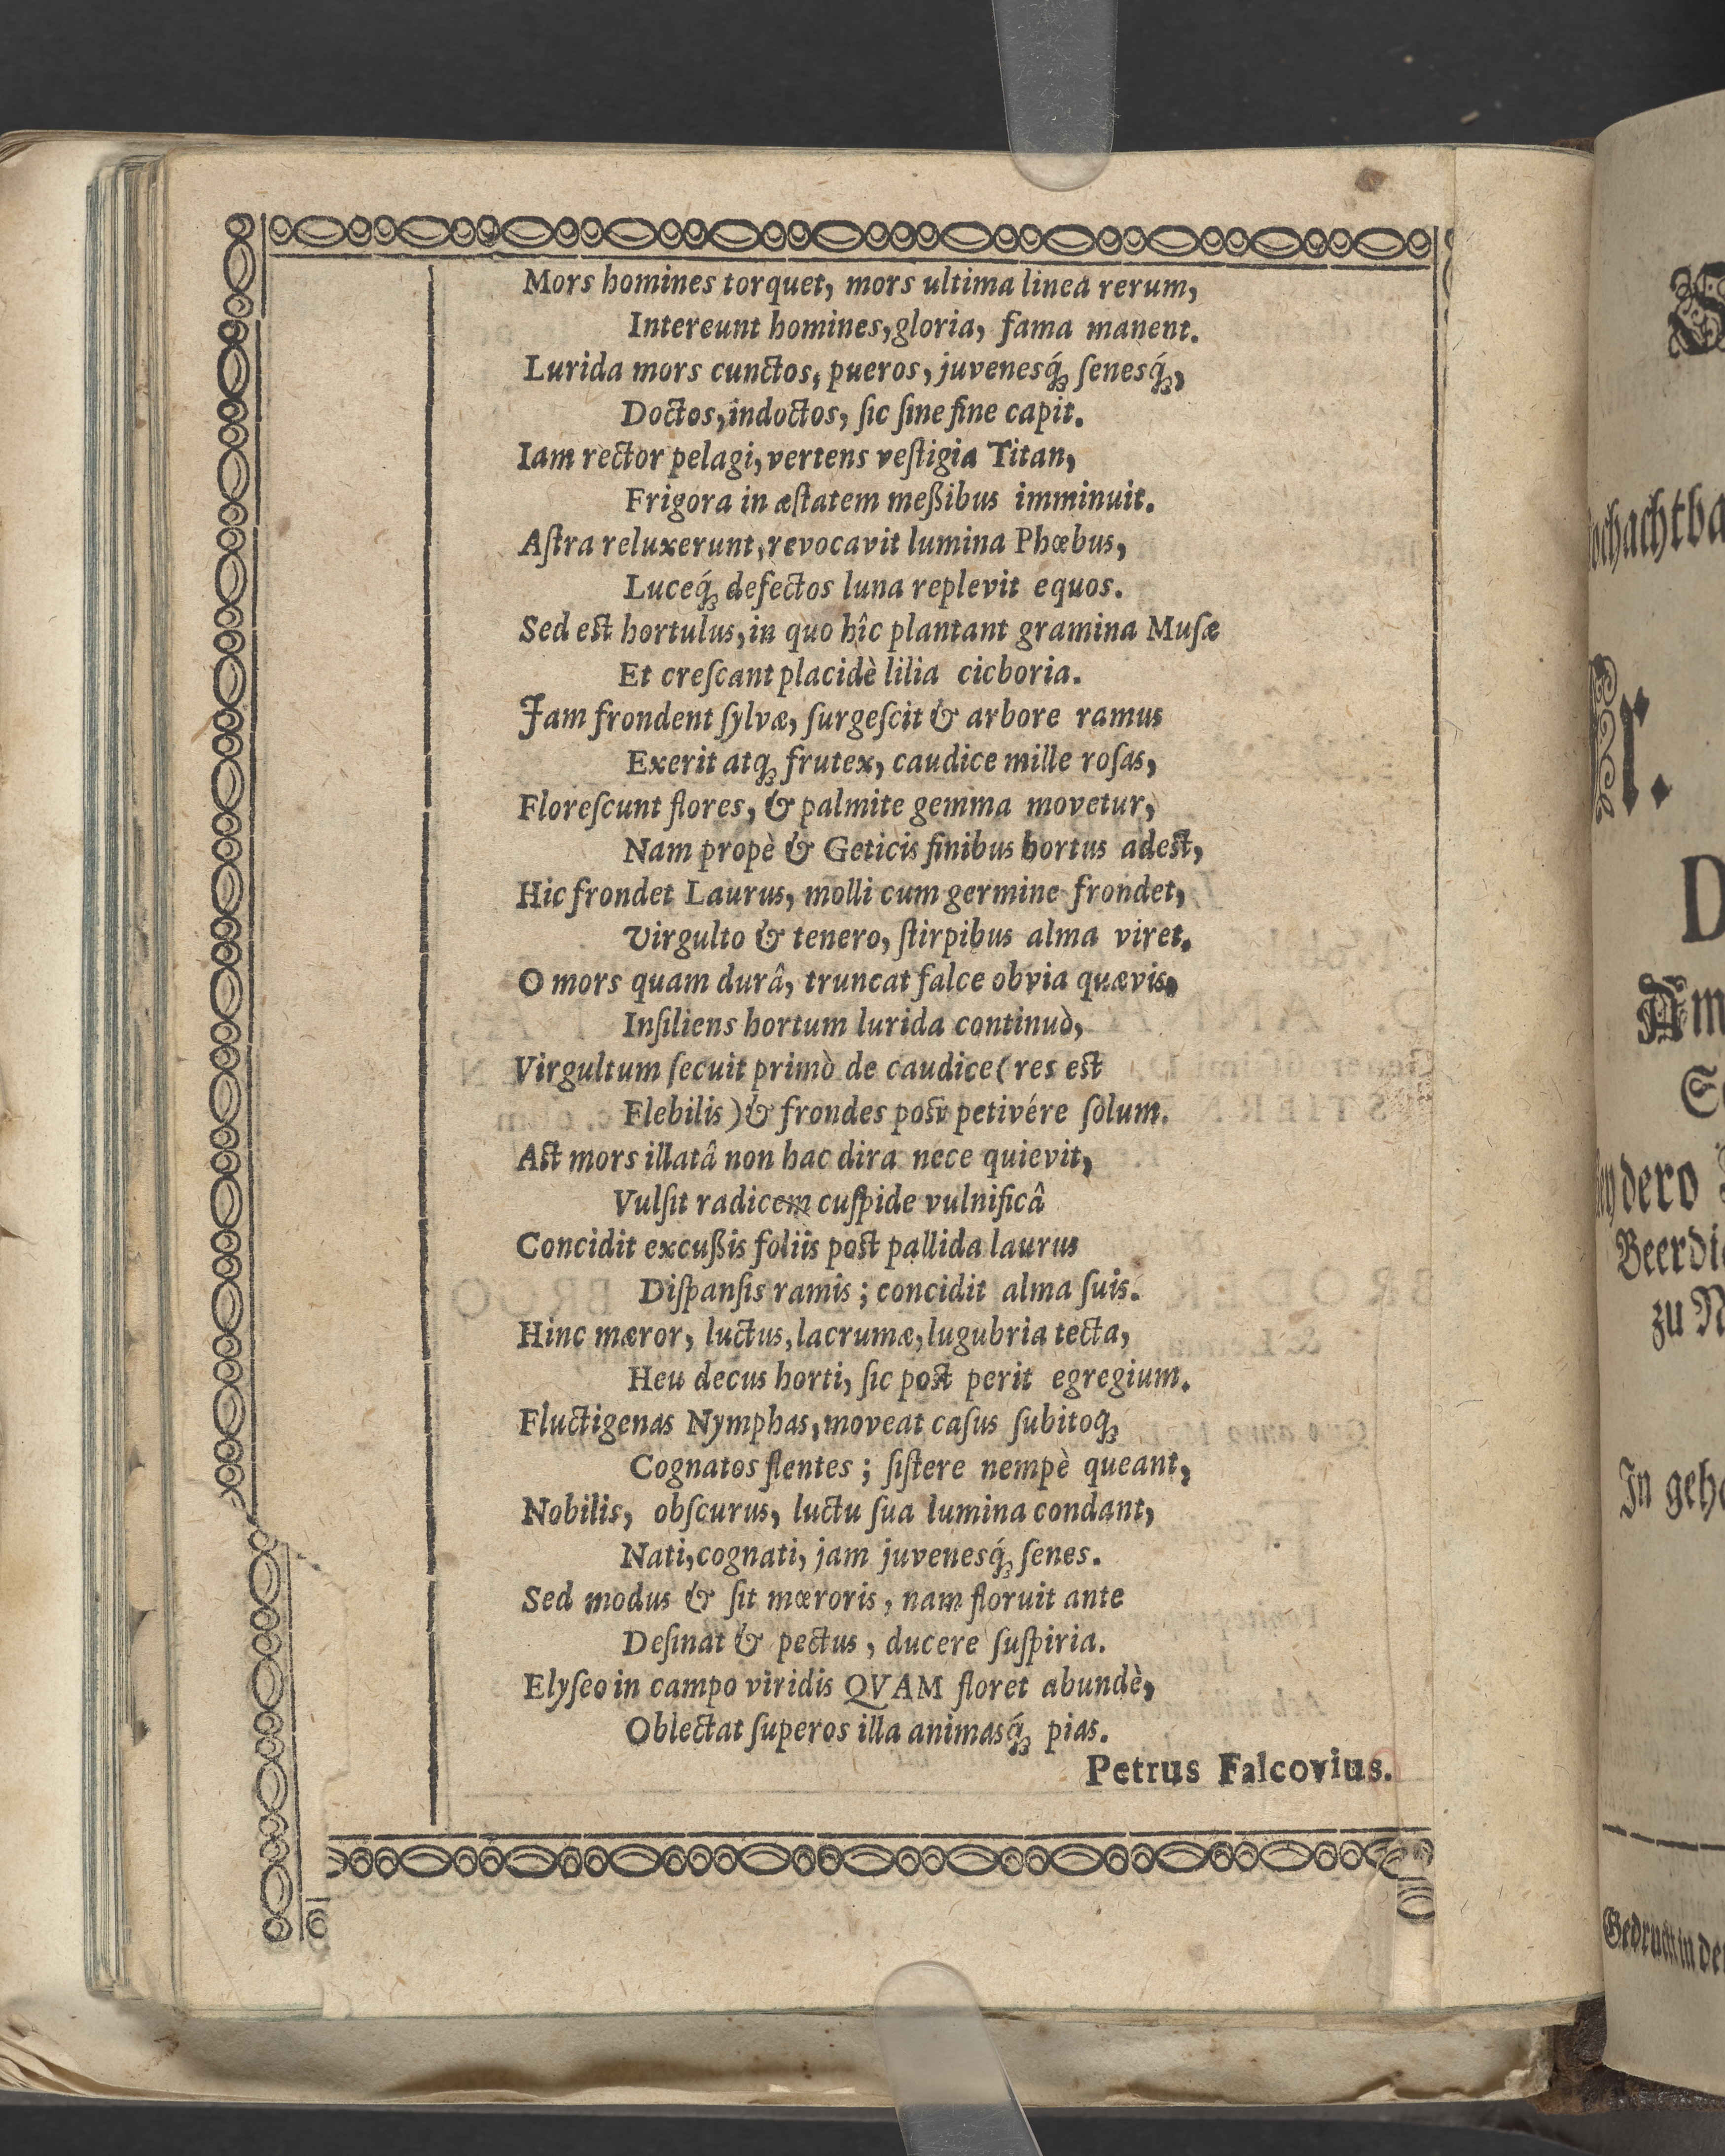 Mors homines torquet, mors ultima linea rerum,
Intereunt homines, gloria, fama manent.
Lurida mors cunctos, pueros, juvenesq́ꝫ ſenesq́ꝫ,
Doctos, indoctos, ſic ſine fine capit.
Iam rector pelagi, vertens veſtigia Titan,
Frigora in æſtatem meßibus imminuit.
Aſtra reluxerunt, revocavit lumina Phœbus,
Luceq́ꝫ defectos luna replevit equos.
Sed eſt hortulus, in quo hîc plantant gramina Muſæ
Et creſcant placidè lilia cicboria.
Jam frondent ſylvæ, ſurgeſcit & arbore ramus
Exerit atqꝫ frutex, caudice mille roſas,
Floreſcunt flores, & palmite gemma movetur,
Nam propè & Geticis finibus hortus adeſt,
Hic frondet Laurus, molli cum germine frondet,
Virgulto & tenero, ſtirpibus alma viret.
O mors quam durâ, truncat falce obvia quævis,
Inſiliens hortum lurida continuò,
Virgultum ſecuit primò de caudice (res eſt
Flebilis) & frondes poſt petivére ſolum.
Aſt mors illatâ non hac dira nece quievit,
Vulſit radicem cuſpide vulnificâ
Concidit excußis foliis poſt pallida laurus
Diſpanſis ramis; concidit alma ſuis.
Hinc mæror, luctus, lacrumæ, lugubria tecta,
Heu decus horti, ſic poſt perit egregium.
Fluctigenas Nymphas, moveat caſus ſubitoqꝫ
Cognatos flentes; ſiſtere nempè queant,
Nobilis, obſcurus, luctu ſua lumina condant,
Nati, cognati, jam juvenesq́ꝫ ſenes.
Sed modus & ſit mœroris, nam floruit ante
Deſinat & pectus, ducere ſuſpiria.
Elyſeo in campo viridis QVAM floret abundè,
Oblectat ſuperos illa animasq́ꝫ pias.
Petrus Falcovius.
Beerdi
zu
In geh
Gedruckt in de